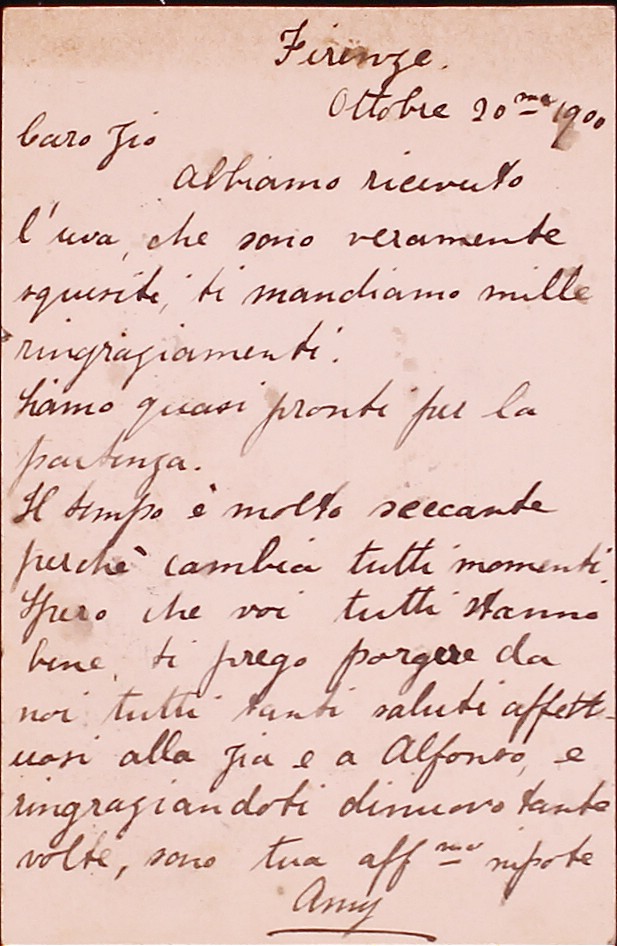 Firenze.
Ottobre 20mo 1900
Caro Zio
Abbiamo ricevuto
l'uva, che sono veramente
squisiti, ti mandiamo mille
ringraziamenti.
Siamo quasi pronti per la
partenza.
Il tempo è molto seccante
perchè cambia tutti momenti.
Spero che voi tutti stanno
bene, ti prego porgere da
noi tutti tanti saluti affett-
uosi alla zia e a Alfonso, e
ringraziandoti dinuovo tante
volte, sono tua affma nipote
Amy